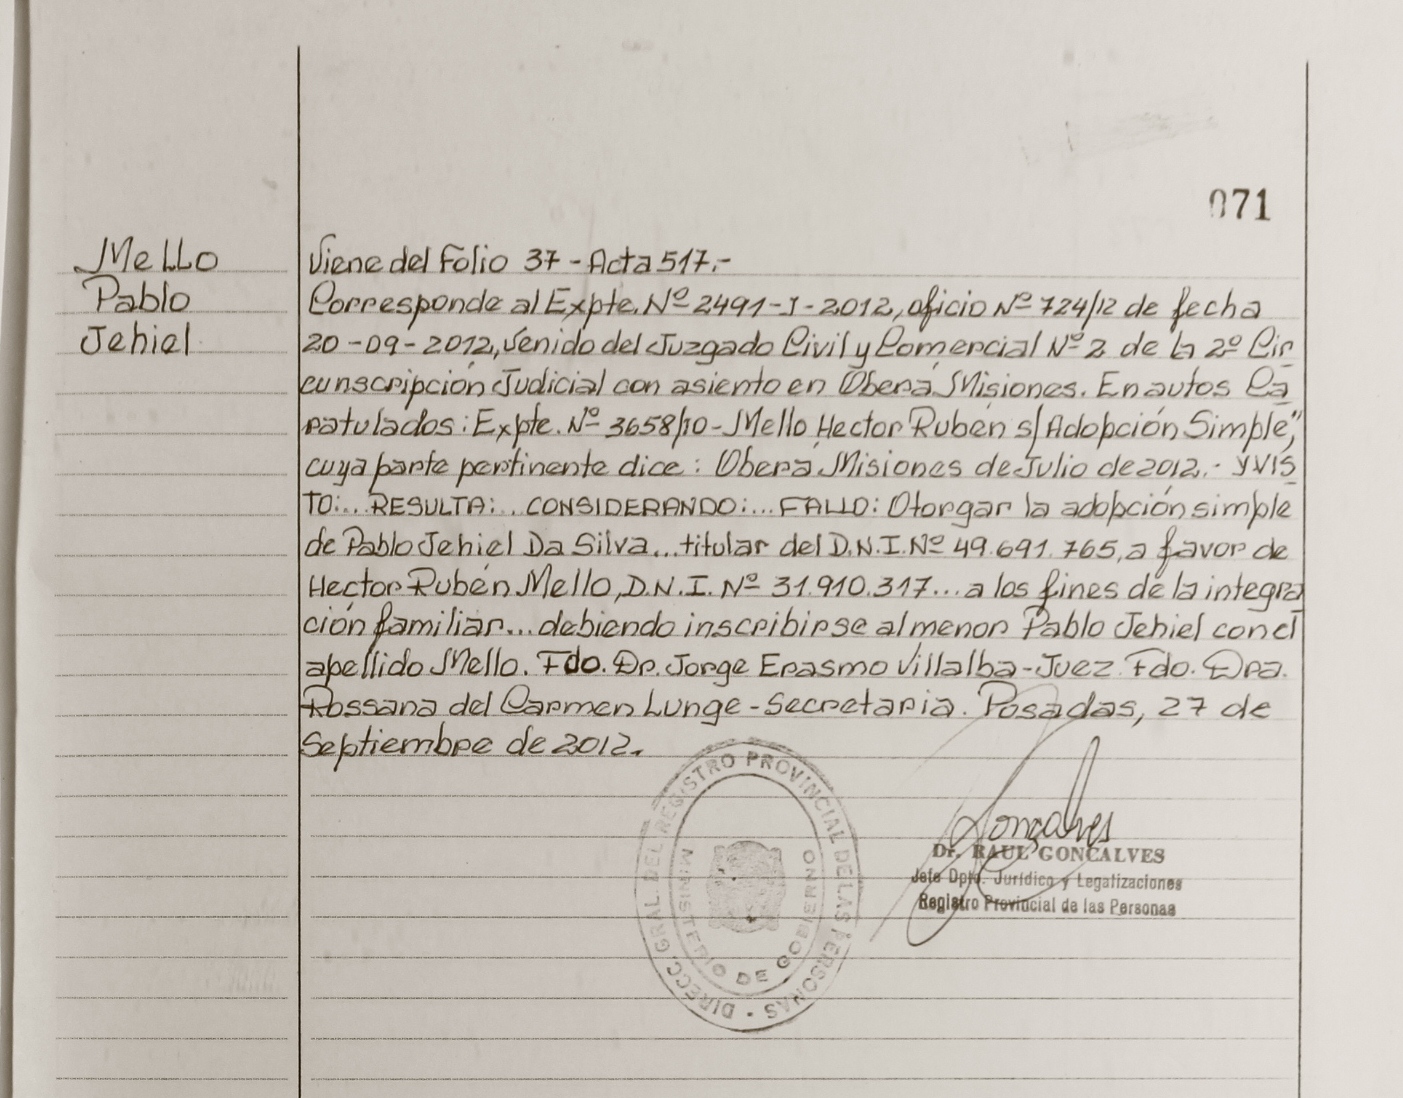 071
Mello
Pablo
Jehiel
Viene del Folio 37 - Acta 517.-
Corresponde al Expte. Nº 2491-J-2012, oficio Nº 724/12 de fecha
20-09-2012, venido del Juzgado Civil y Comercial Nº 2 de la 2º Cir
cunscripción Judicial con asiento en Oberá Misiones. En autos Ca
ratulados: Expte. Nº 3658/10 - Mello Hector Ruben s/ Adopción Simple",
cuya parte pertinente dice: Oberá Misiones de Julio de 2012.- Y VIS
TO:... RESULTA:... CONSIDERANDO:... FALLO: Otorgar la adopción simple
de Pablo Jehiel Da Silva... titular del D.N.I. Nº 49.691.765, a favor de
Hector Rubén Mello, D.N.I. Nº 31.910.317... a los fines de la integra
ción familiar... debiendo inscribirse al menor Pablo Jehiel con el
apellido Mello. Fdo. Dr. Jorge Erasmo Villalba - Juez. Fdo. Dra.
Rossana del Carmen Lunge - Secretaria. Posadas, 27 de
Septiembre de 2012.
DIRECC. GRAL. DEL REGISTRO PROVINCIAL DE LAS PERSONAS -
MINISTERIO DE GOBIERNO
Gonçalves
Dr. RAUL GONCALVES
Jefe Dpto. Jurídico y Legalizaciones
Registro Provincial de las Personas